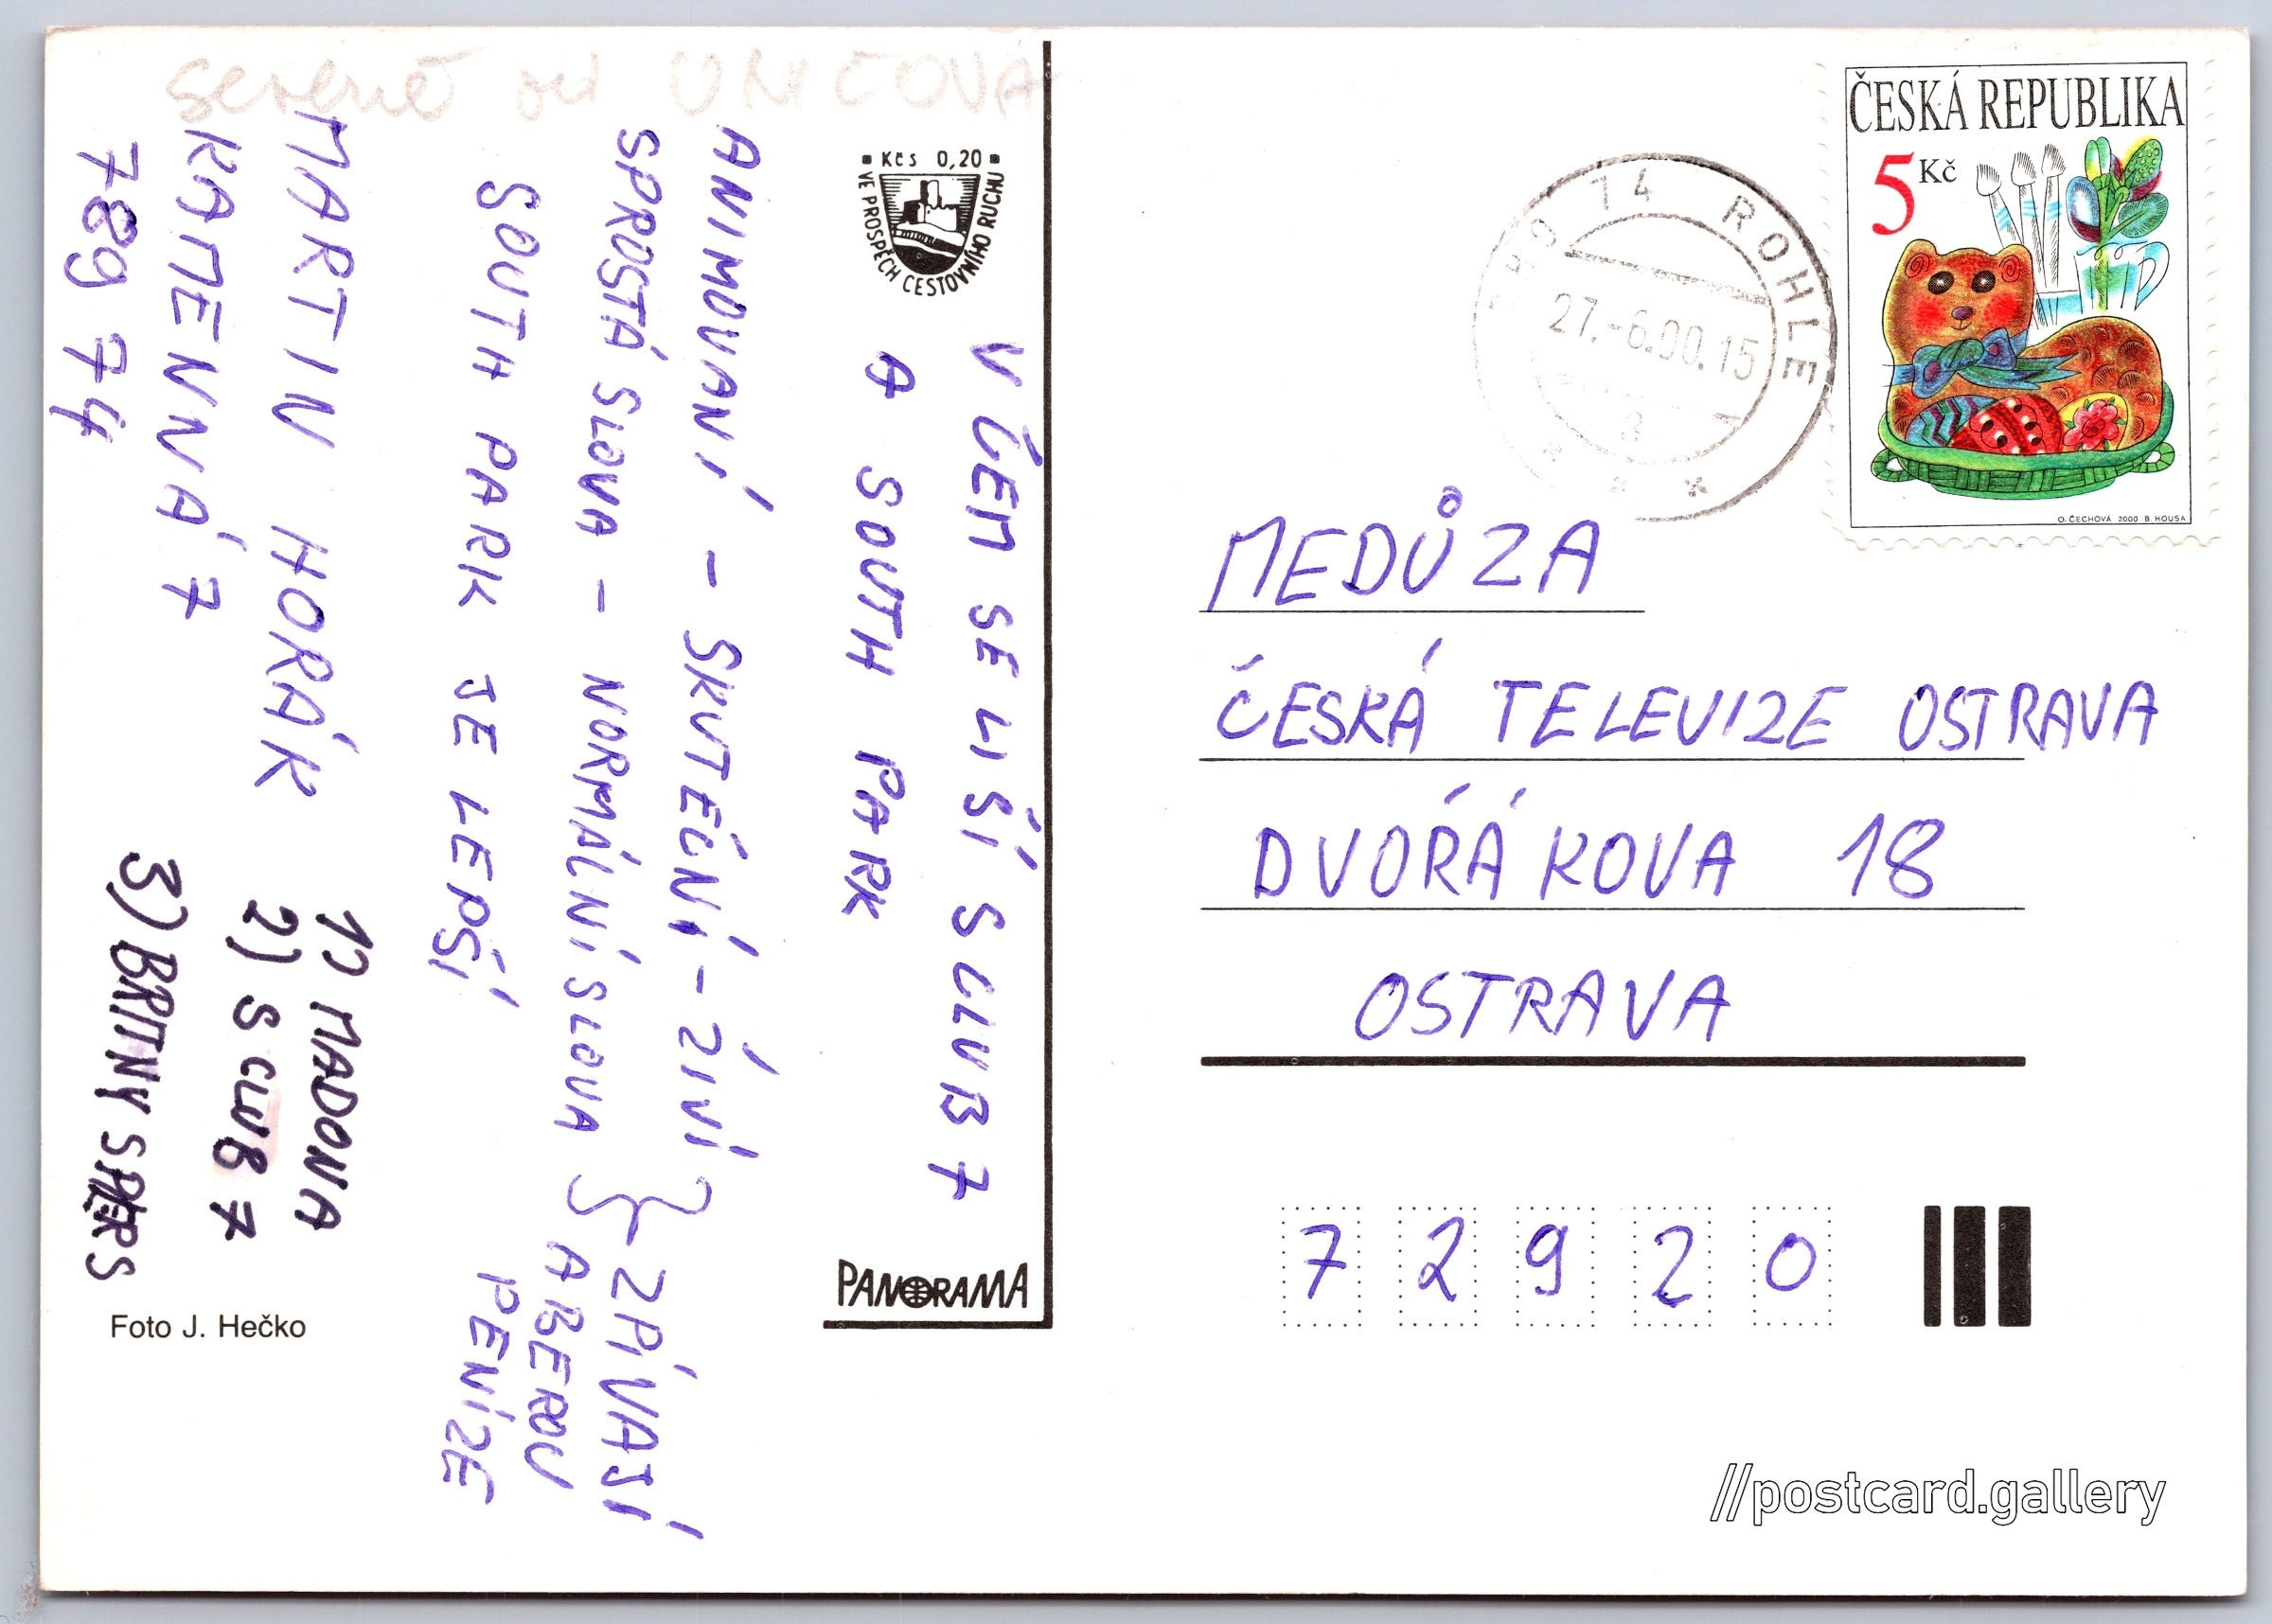 severně od UNIČOVA
Kčs 0,20
VE PROSPĚCH CESTOVNÍHO RUCHU
V ČEM SE LIŠÍ S CLUB 7
A SOUTH PARK
ANIMOVANÍ - SKUTEČNÍ - ŽIVÍ
SPROSTÁ SLOVA - NORMÁLNÍ SLOVA
ZPÍVAJÍ
A BEROU
PENÍZE
SOUTH PARK JE LEPŠÍ
MARTIN HORÁK
KAMENNÁ 7
789 74
1) MADONA
2) S CLUB 7
3) BRITNY SPIERS
Foto J. Hečko
PANORAMA
ČESKÁ REPUBLIKA
5 Kč
O. ČECHOVÁ 2000 B. HOUSA
789 74 ROHLE
27.-6.00.15
a
MEDŮZA
ČESKÁ TELEVIZE OSTRAVA
DVOŘÁKOVA 18
OSTRAVA
72920
//postcard.gallery